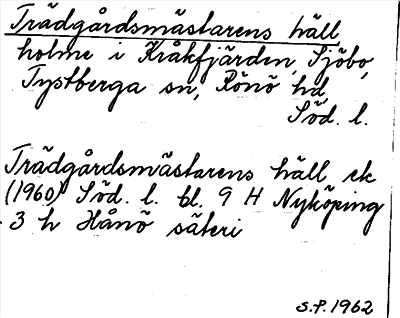 Trädgårdsmästarens häll
holme i Kråkfjärden, Sjöbo,
Tystberga sn, Rönö hd
Söd. l.
Trädgårdsmästarens häll ek
(1960) Söd. l. bl. 9 H Nyköping
3 h Hånö säteri
S.P. 1962